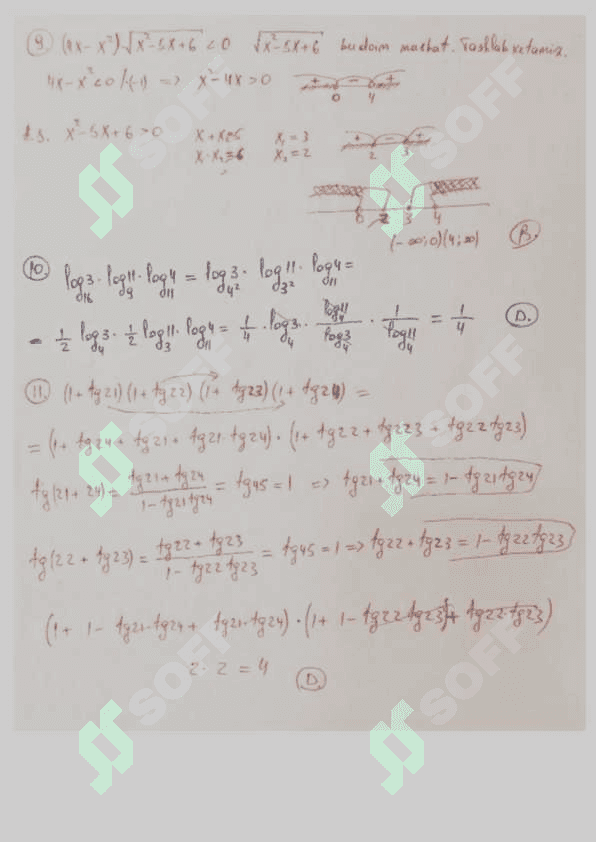 9. (4x - x²)√x²-5x+6 < 0 √x²-5x+6 budoim musbat. Tashlab ketamiz.
4x - x² < 0 /·(-1) => x² - 4x > 0 + - + 0 4
A.S. x² - 5x + 6 > 0 x₁ = 3 + - + 2 3
x₂ = 2
0 2 3 4
(-∞; 0) (4; ∞) B.
10. log₁₆3 · log₉11 · log₁₁4 = log₄²3 · log₃²11 · log₁₁4 =
= 1/2 log₄3 · 1/2 log₃11 · log₁₁4 = 1/4 · log₄3 · log₄11/log₄3 · 1/log₄11 = 1/4 D.
11. (1 + tg21)(1 + tg22)(1 + tg23)(1 + tg24) =
= (1 + tg24 + tg21 + tg21·tg24) · (1 + tg22 + tg23 + tg22 tg23)
tg(21 + 24) = tg21 + tg24 / 1 - tg21 tg24 = tg45 = 1 => tg21 + tg24 = 1 - tg21 tg24
tg(22 + tg23) = tg22 + tg23 / 1 - tg22 tg23 = tg45 = 1 => tg22 + tg23 = 1 - tg22 tg23
(1 + 1 - tg21·tg24 + tg21·tg24) · (1 + 1 - tg22·tg23 + tg22·tg23)
2 · 2 = 4 D.
SOFF
SOFF
SOFF
SOFF
SOFF
SOFF